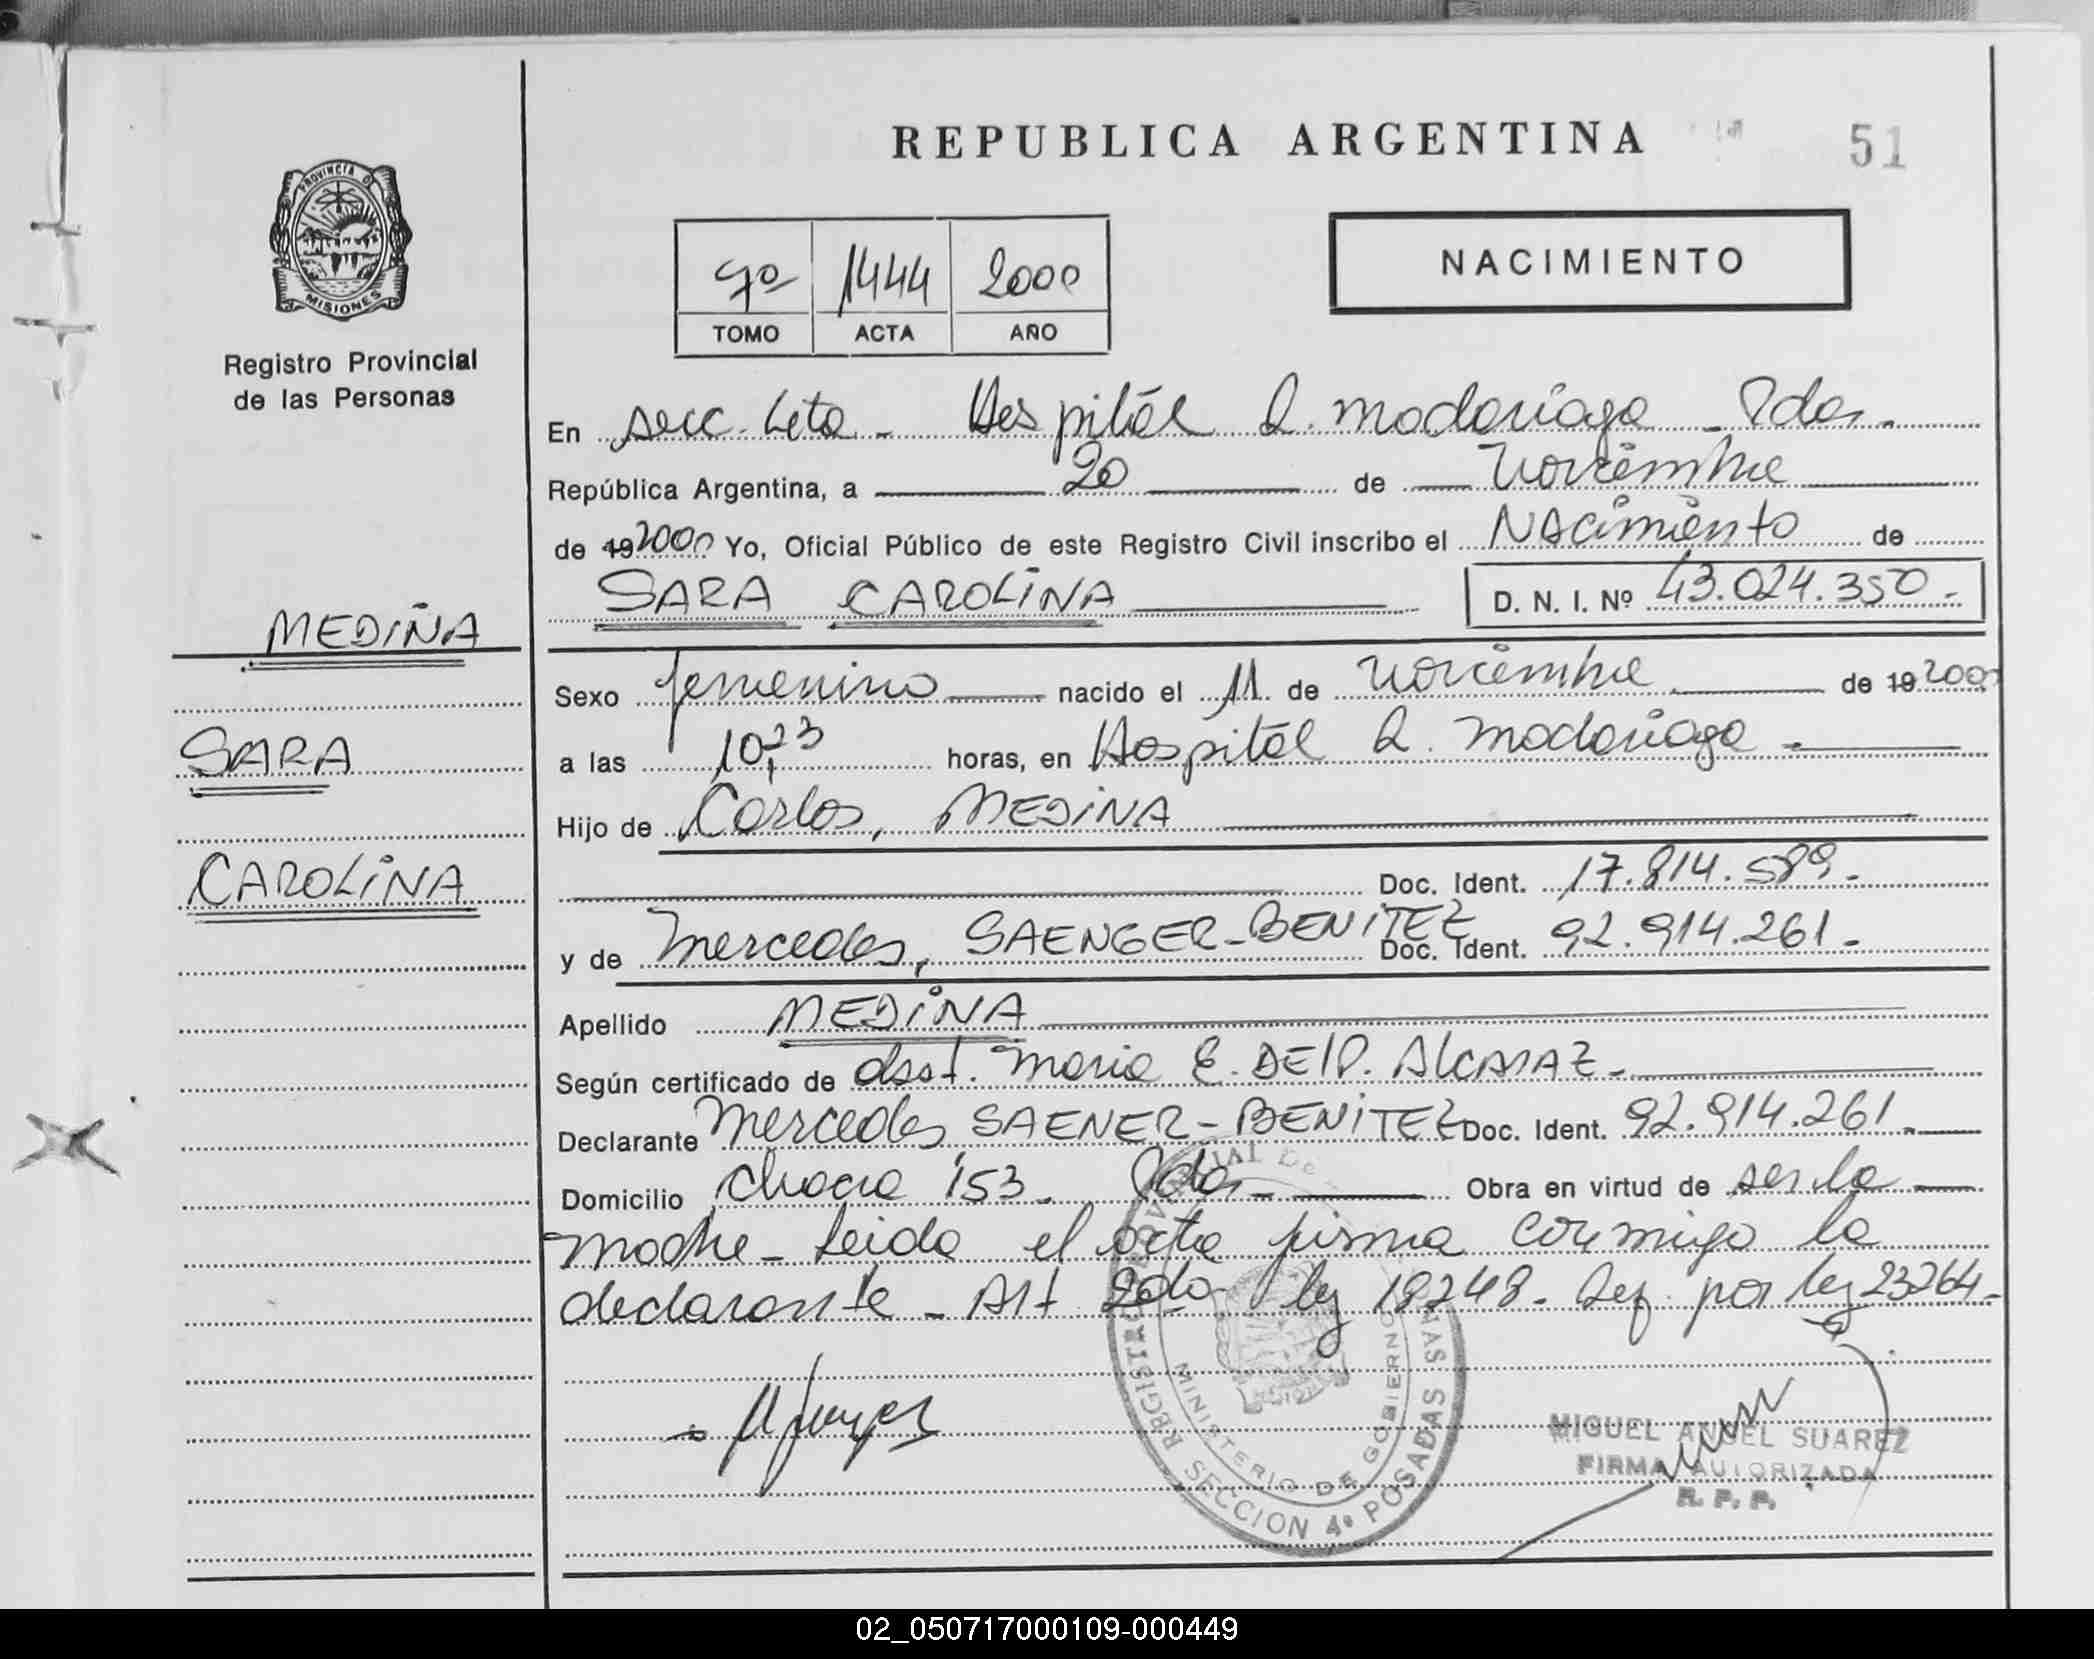 REPUBLICA ARGENTINA
51
PROVINCIA DE
MISIONES
Registro Provincial
de las Personas
1444 2000
TOMO ACTA AÑO
NACIMIENTO
En secc. 4ta - Hospital R. Madariaga - Pdas.
República Argentina, a 20 de Noviembre
de 19 2000 Yo, Oficial Público de este Registro Civil inscribo el NACimiento de
SARA CAROLINA D. N. I. Nº 43.024.350.-
MEDINA
SARA
CAROLINA
Sexo femenino nacido el 11 de Noviembre de 19 2000
a las 10,23 horas, en Hospital R. Madariaga -
Hijo de Carlos, MEDINA
Doc. Ident. 17.814.589.-
y de Mercedes, SAENGER-BENITEZ Doc. Ident. 92.914.261.-
Apellido MEDINA
Según certificado de obst. Maria E. DEID. AlCARAZ.-
Declarante Mercedes, SAENER-BENITEZ Doc. Ident. 92.914.261.-
Domicilio Chacra 153. Pdas- Obra en virtud de ser la
madre - Leida el acta firma conmigo la
declarante - Art 2do ley 18248. Ref. por ley 23264.-
REGISTRO PROVINCIAL DE LAS
SECCION 4º POSADAS
MINISTERIO DE GOBIERNO
MIGUEL ANGEL SUAREZ
FIRMA AUTORIZADA
R. P. P.
02_050717000109-000449